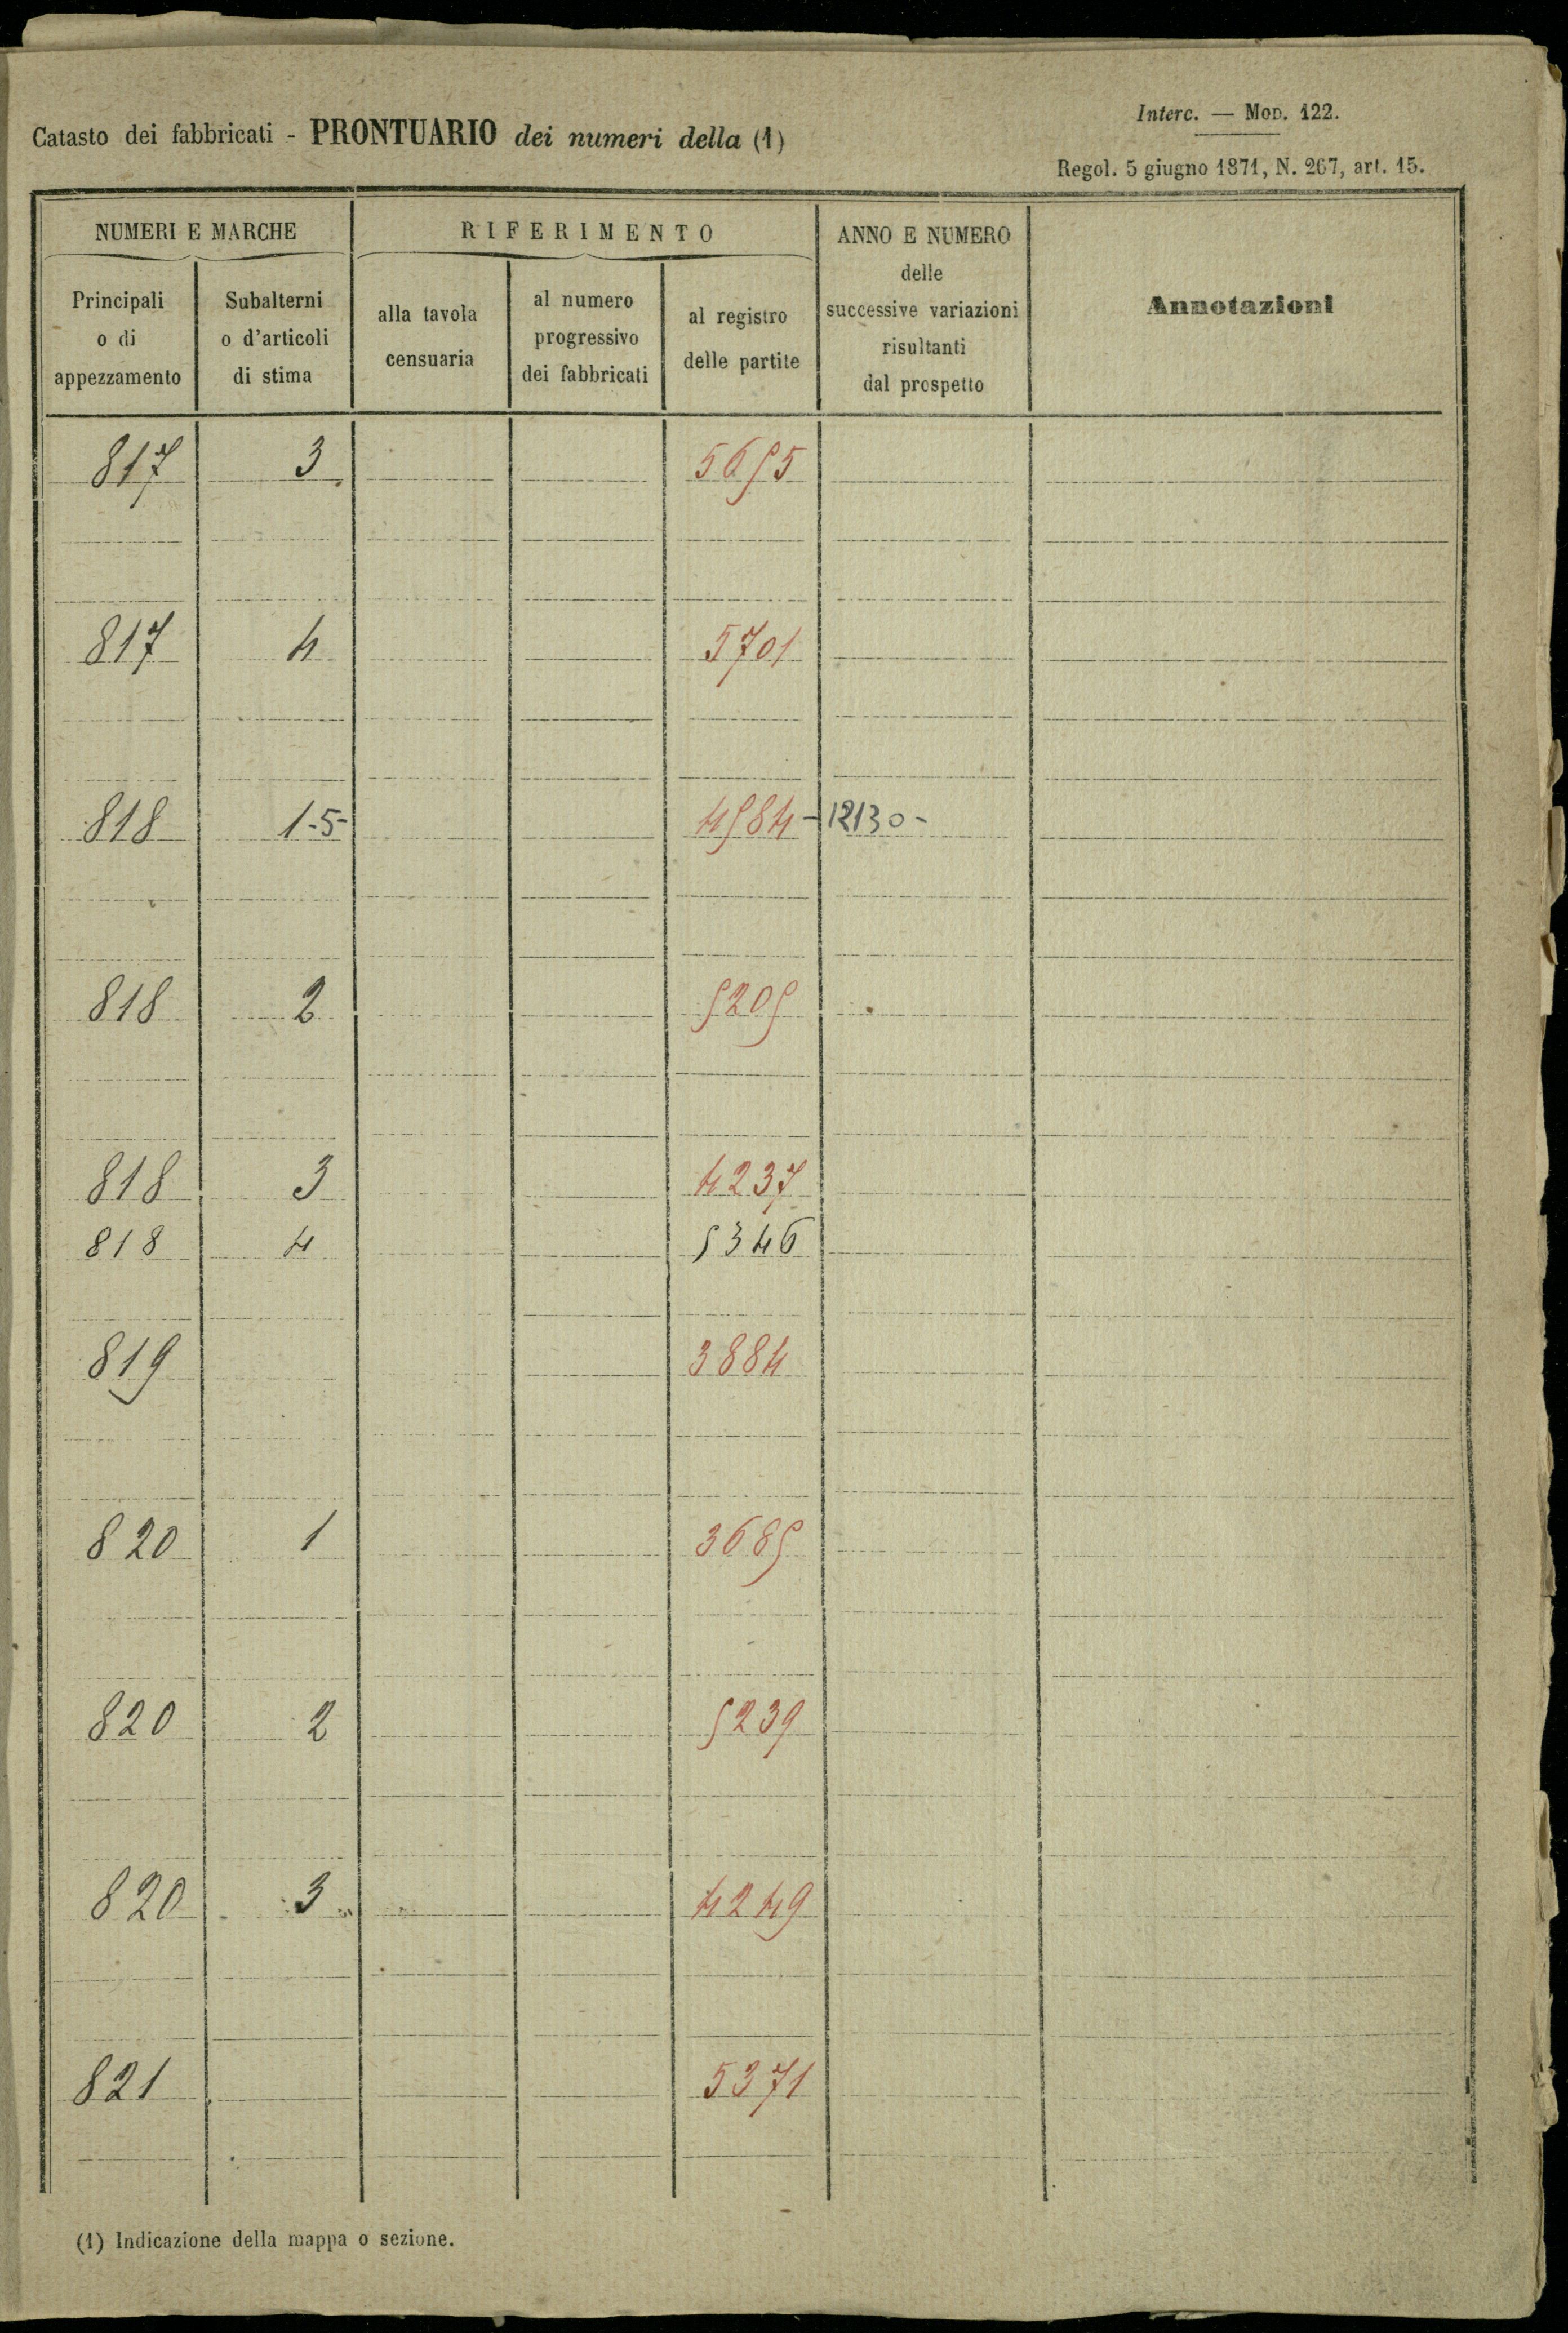 Interc. — MOD. 122.
Catasto dei fabbricati - PRONTUARIO dei numeri della (1)
Regol. 5 giugno 1871, N. 267, art. 15.
NUMERI E MARCHE
RIFERIMENTO
ANNO E NUMERO
delle
successive variazioni
risultanti
dal prospetto
Annotazioni
Principali
o di
appezzamento
Subalterni
o d'articoli
di stima
alla tavola
censuaria
al numero
progressivo
dei fabbricati
al registro
delle partite
817 3 5655
817 4 5701
818 1-5- 4584 - 12130 -
818 2 5205
818 3 4237
818 4 5346
819 3884
820 1 3685
820 2 5239
820 3 4249
821 5371
(1) Indicazione della mappa o sezione.